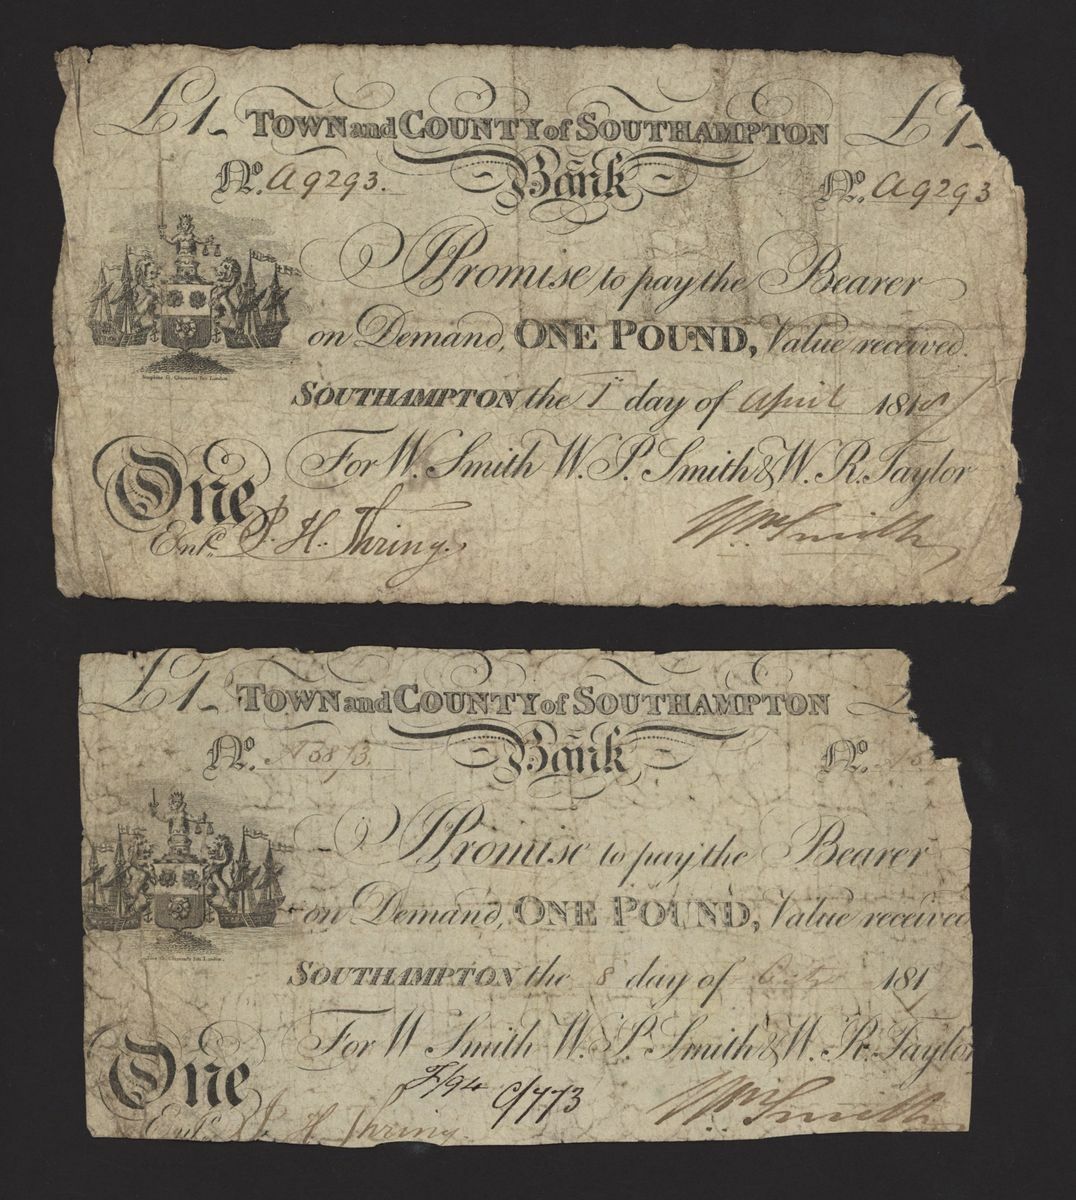 £1 TOWN and COUNTY of SOUTHAMPTON £1
Bank
No. A9293. No. A9293
I Promise to pay the Bearer
on Demand, ONE POUND, Value received.
SOUTHAMPTON the 1st day of April 1818
For W. Smith W. P. Smith & W. R. Taylor
One
Entd. J. H. Thring. Wm. Smith
£1 TOWN and COUNTY of SOUTHAMPTON
Bank
No. A3873. No.
I Promise to pay the Bearer
on Demand, ONE POUND, Value received
SOUTHAMPTON the 8 day of 181
For W Smith W. P. Smith & W. R. Taylor
F/94 C/773
One
Entd. J. H. Thring. Wm. Smith